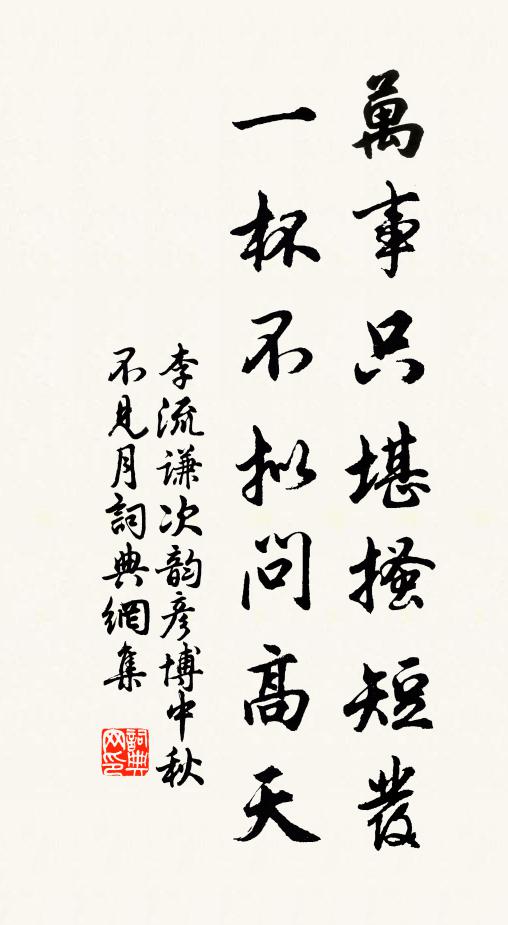 萬事只堪搔短發
一杯不拟問高天
李流谦次韵彦博中秋
不見月詞典網集
詞典
网印